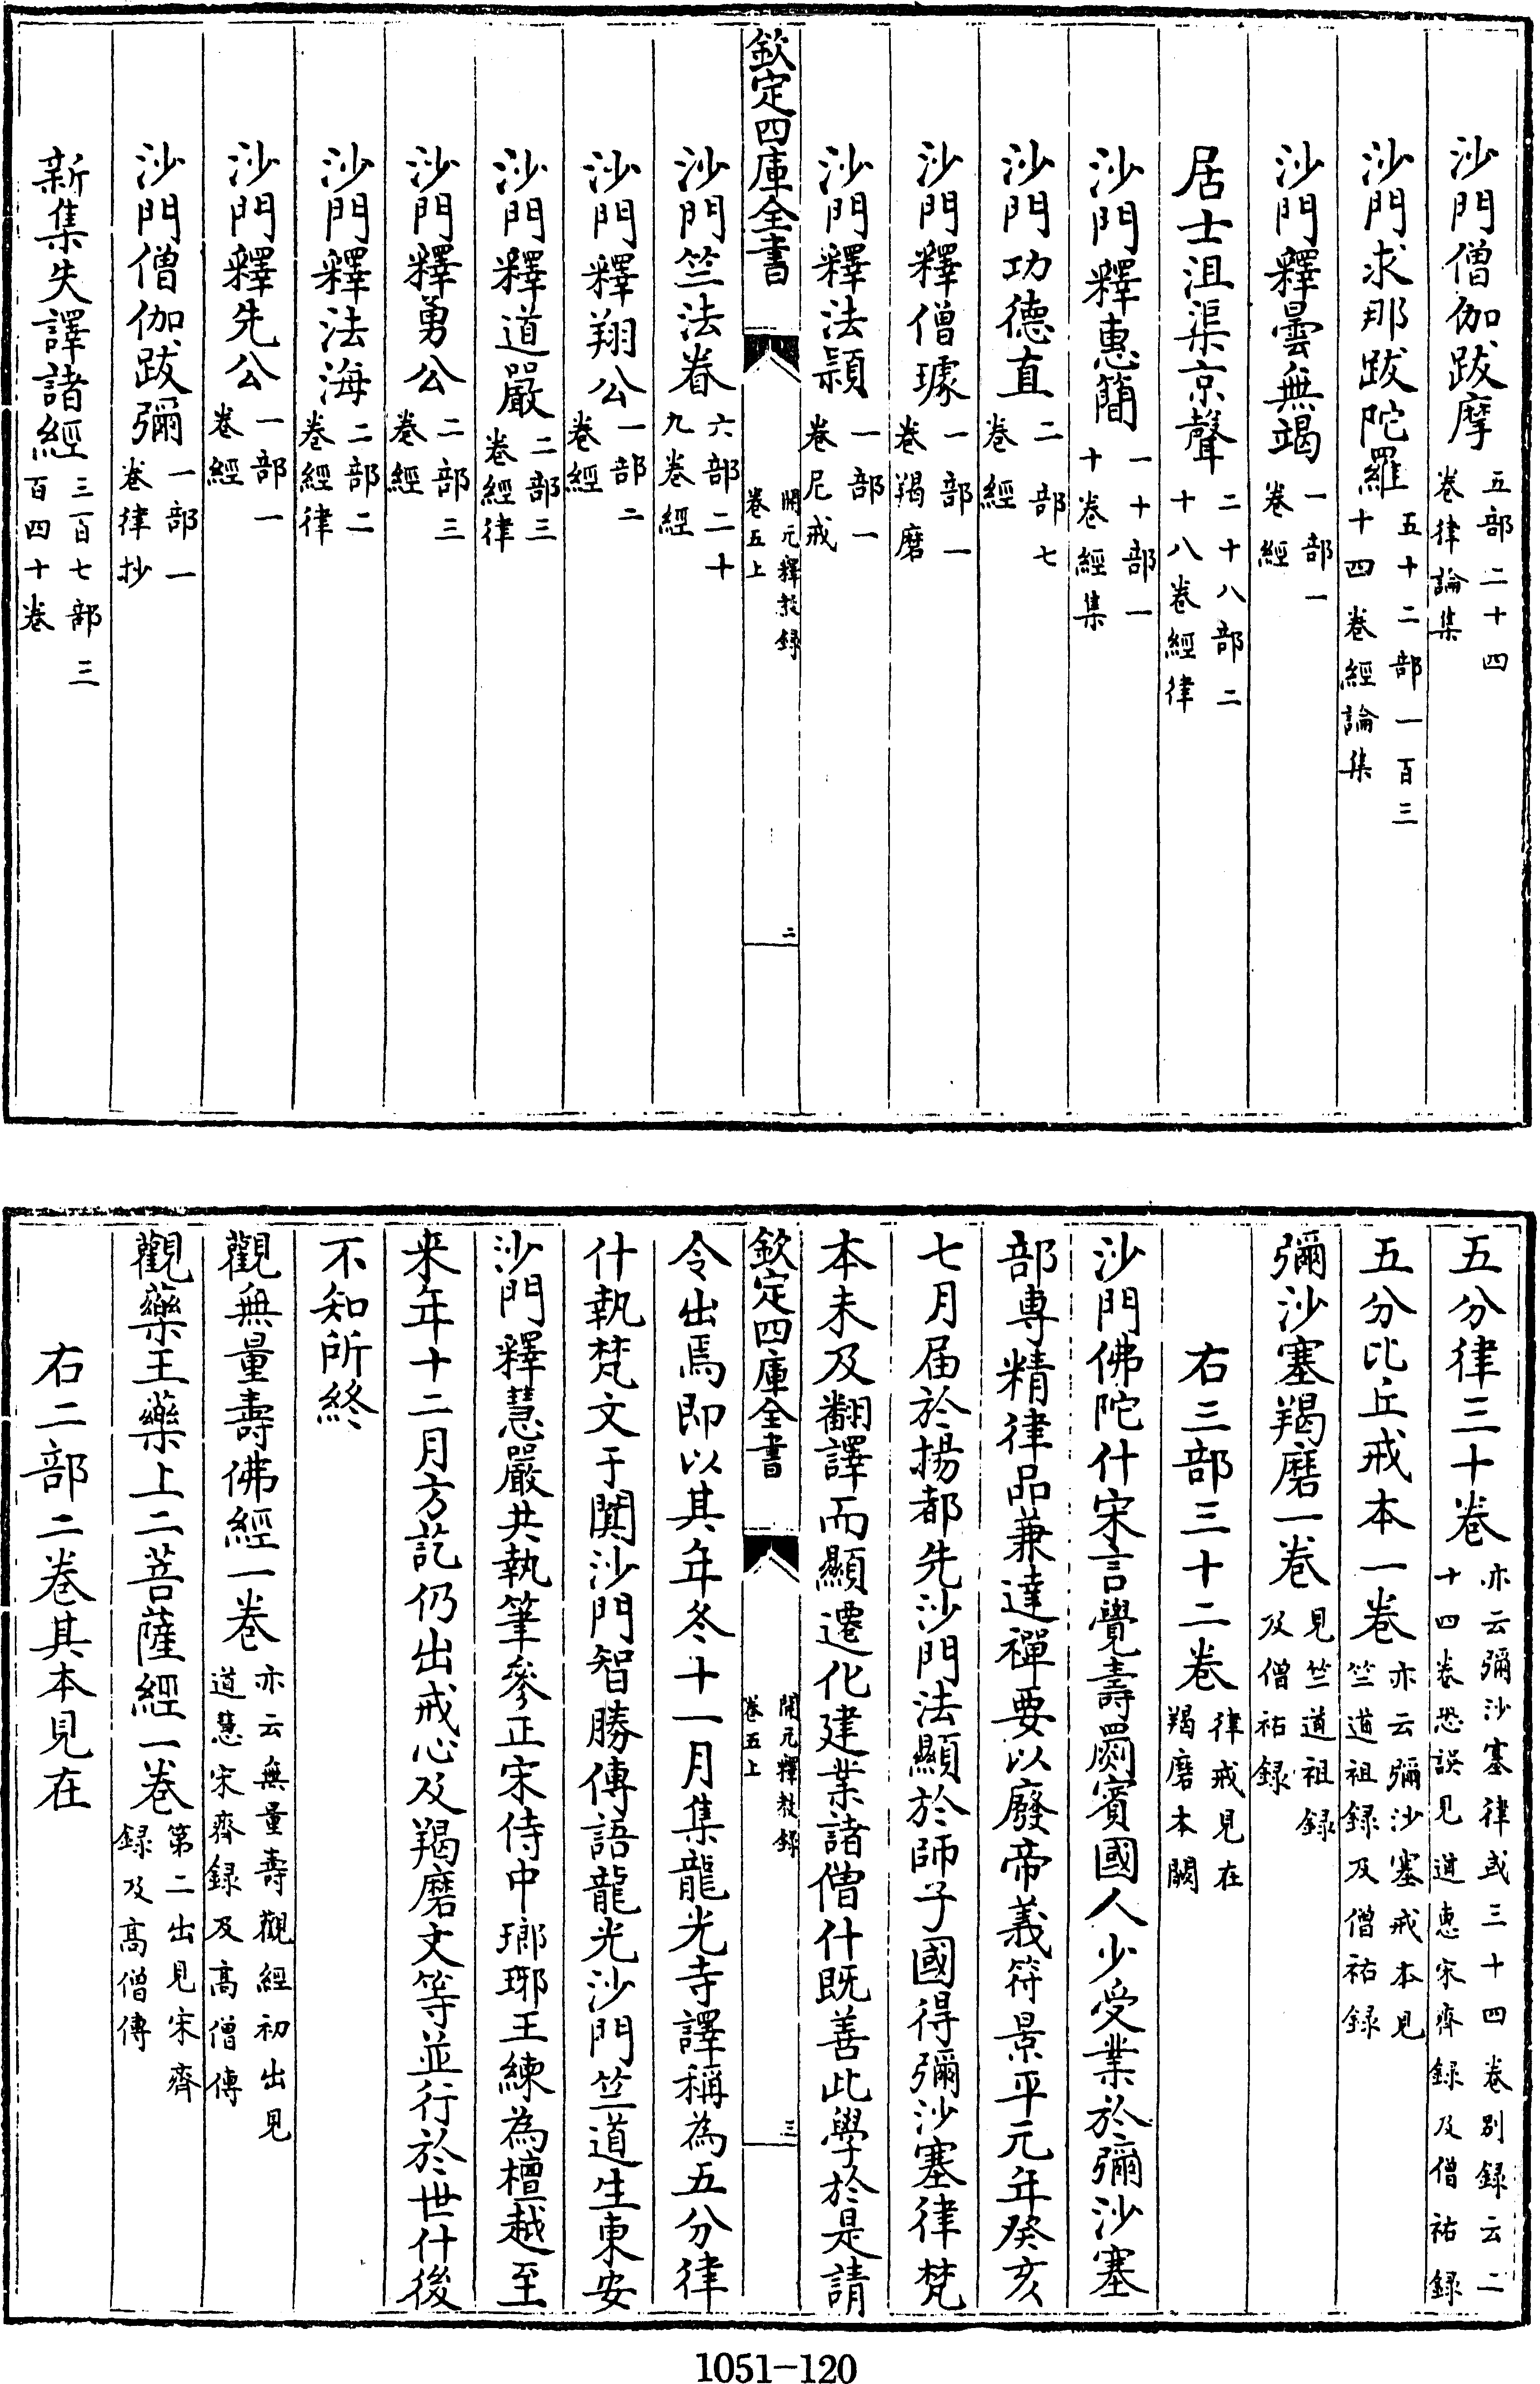 沙門僧伽跋摩五部二十四卷律論集
沙門求那跋陀羅五十二部一百三十四卷經論集
沙門釋曇無竭一部一卷經
居士沮渠京聲二十八部二十八卷經律
沙門釋惠簡一十部一十卷經集
沙門功德直二部七卷經
沙門釋僧璩一部一卷羯磨
沙門釋法頴一部一卷尼戒
欽定四庫全書 開元釋教録卷五上 二
沙門竺法眷六部二十九卷經
沙門釋翔公一部二卷經
沙門釋道嚴二部三卷經律
沙門釋勇公二部三卷經
沙門釋法海二部二卷經律
沙門釋先公一部一卷經
沙門僧伽跋彌一部一卷律抄
新集失譯諸經三百七部三百四十卷
五分律三十卷亦云彌沙塞律或三十四卷别録云二十四卷恐誤見道惠宋齊録及僧祐録
五分比丘戒本一卷亦云彌沙塞戒本見竺道祖録及僧祐録
彌沙塞羯磨一卷見竺道祖録及僧祐録
右三部三十二卷律戒見在羯磨本闕
沙門佛陀什宋言覺壽罽賓國人少受業於彌沙塞
部專精律品兼達禪要以廢帝義符景平元年癸亥
七月届於揚都先沙門法顯於師子國得彌沙塞律梵
本未及翻譯而顯遷化建業諸僧什既善此學於是請
欽定四庫全書 開元釋教録卷五上 三
令出焉即以其年冬十一月集龍光寺譯稱為五分律
什執梵文于闐沙門智勝傳語龍光沙門竺道生東安
沙門釋慧嚴共執筆參正宋侍中瑯琊王練為檀越至
来年十二月方訖仍出戒心及羯磨文等並行於世什後
不知所終
觀無量壽佛經一卷亦云無量壽觀經初出見道慧宋齊録及高僧傳
觀藥王藥上二菩薩經一卷第二出見宋齊録及高僧傳
右二部二卷其本見在
1051-120